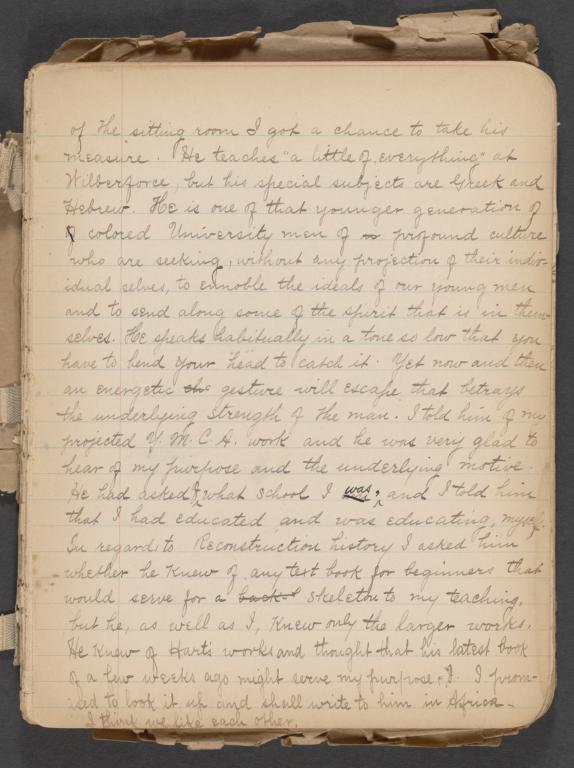 of the sitting room I got a chance to take his
measure. He teaches "a little of everything" at
Wilberforce, but his special subjects are Greek and
Hebrew. He is one of that younger generation of
colored University men of profound culture
who are seeking, without any projection of their indiv-
idual selves, to ennoble the ideals of our young men
and to send along some of the spirit that is in them-
selves. He speaks habitually in a tone so low that you
have to bend your head to catch it. Yet now and then
an energetic gesture will escape that betrays
the underlying strength of the man. I told him of my
projected Y.M.C.A. work and he was very glad to
hear of my purpose and the underlying motive.
He had asked what school I was, and I told him
that I had educated and was educating, myself.
In regard to Reconstruction history I asked him
whether he knew of any text book for beginners that
would serve for a skeleton to my teaching,
but he, as well as I, knew only the larger works.
He knew of Hart's works and thought that his latest book
of a few weeks ago might serve my purpose. I prom-
ised to look it up and shall write to him in Africa.
I think we like each other.